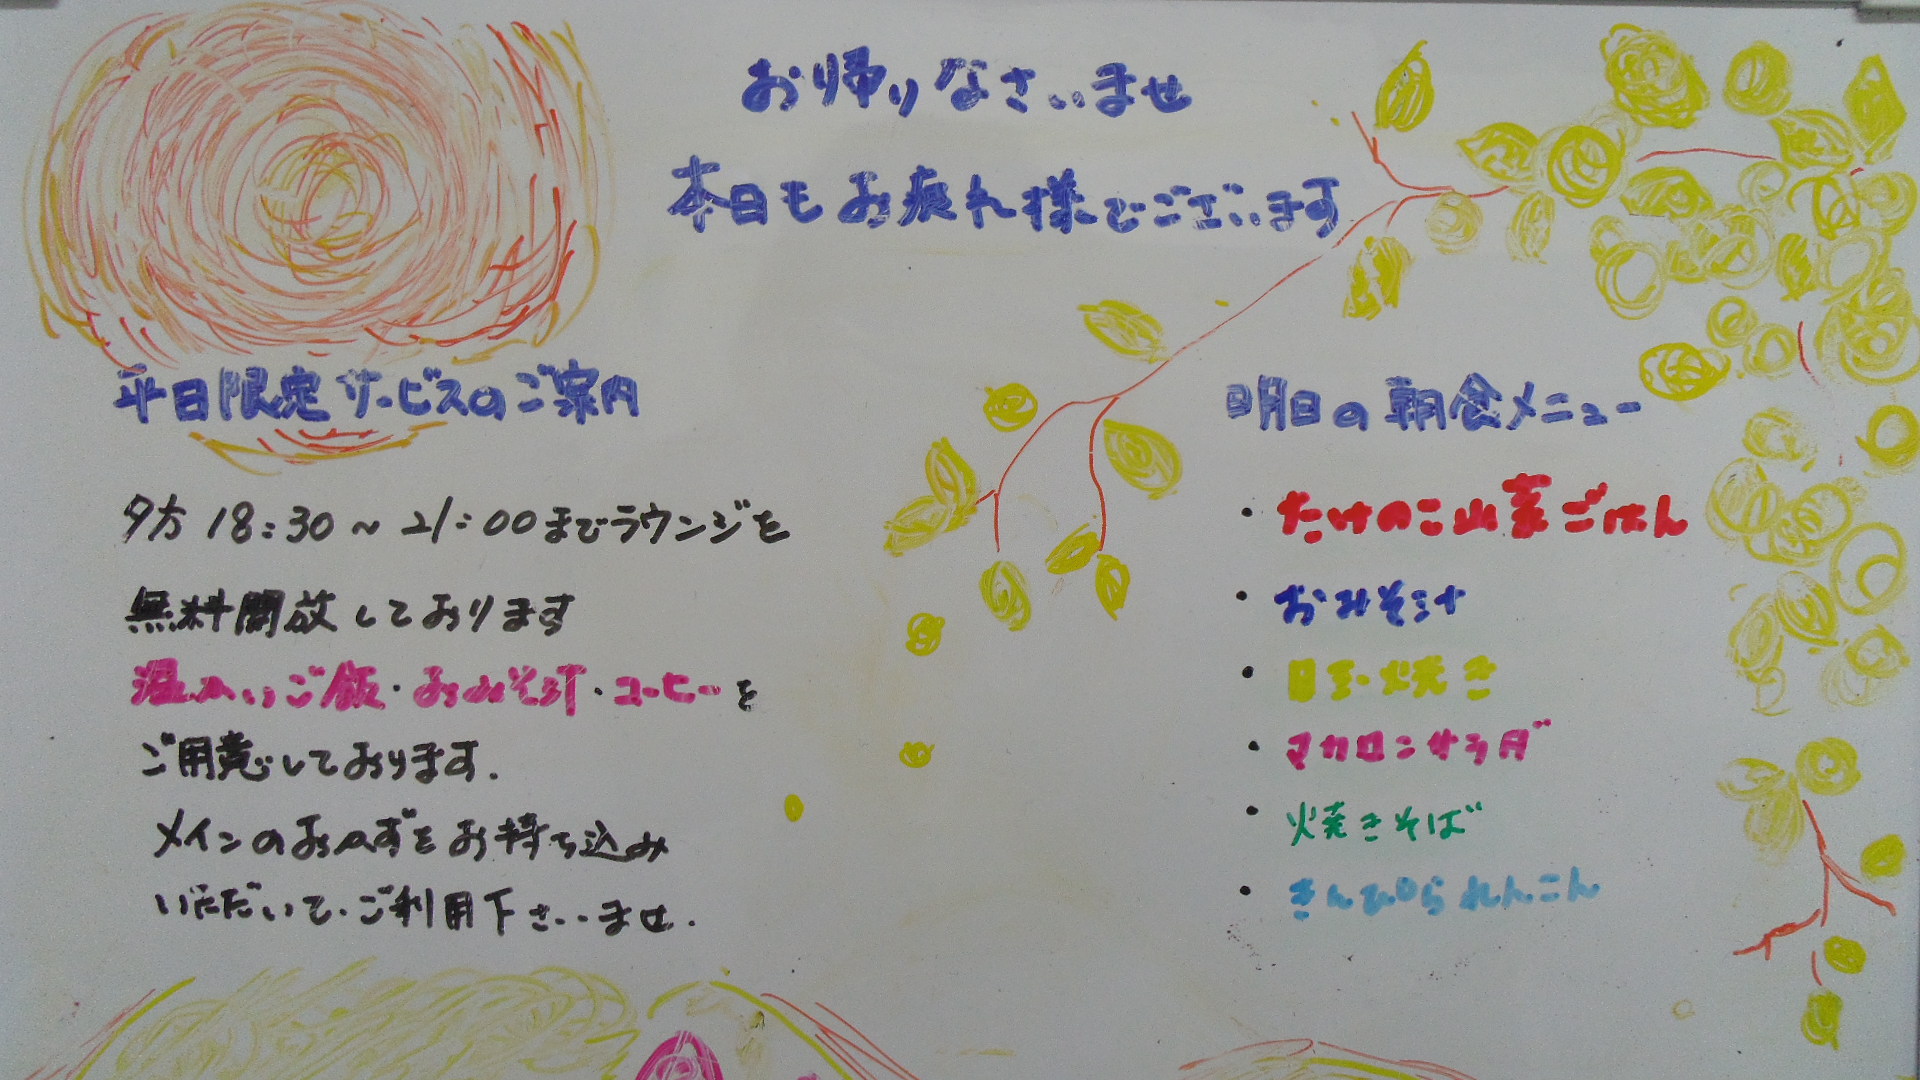 お帰りなさいませ
本日もお疲れ様でございます
平日限定サービスのご案内
夕方 18:30～21:00までラウンジを
無料開放しております
温かいご飯・おみそ汁・コーヒーを
ご用意しております.
メインのおかずをお持ち込み
いただいて、ご利用下さいませ.
明日の朝食メニュー
・たけのこ山菜ごはん
・おみそ汁
・目玉焼き
・マカロンサラダ
・焼きそば
・きんぴられんこん